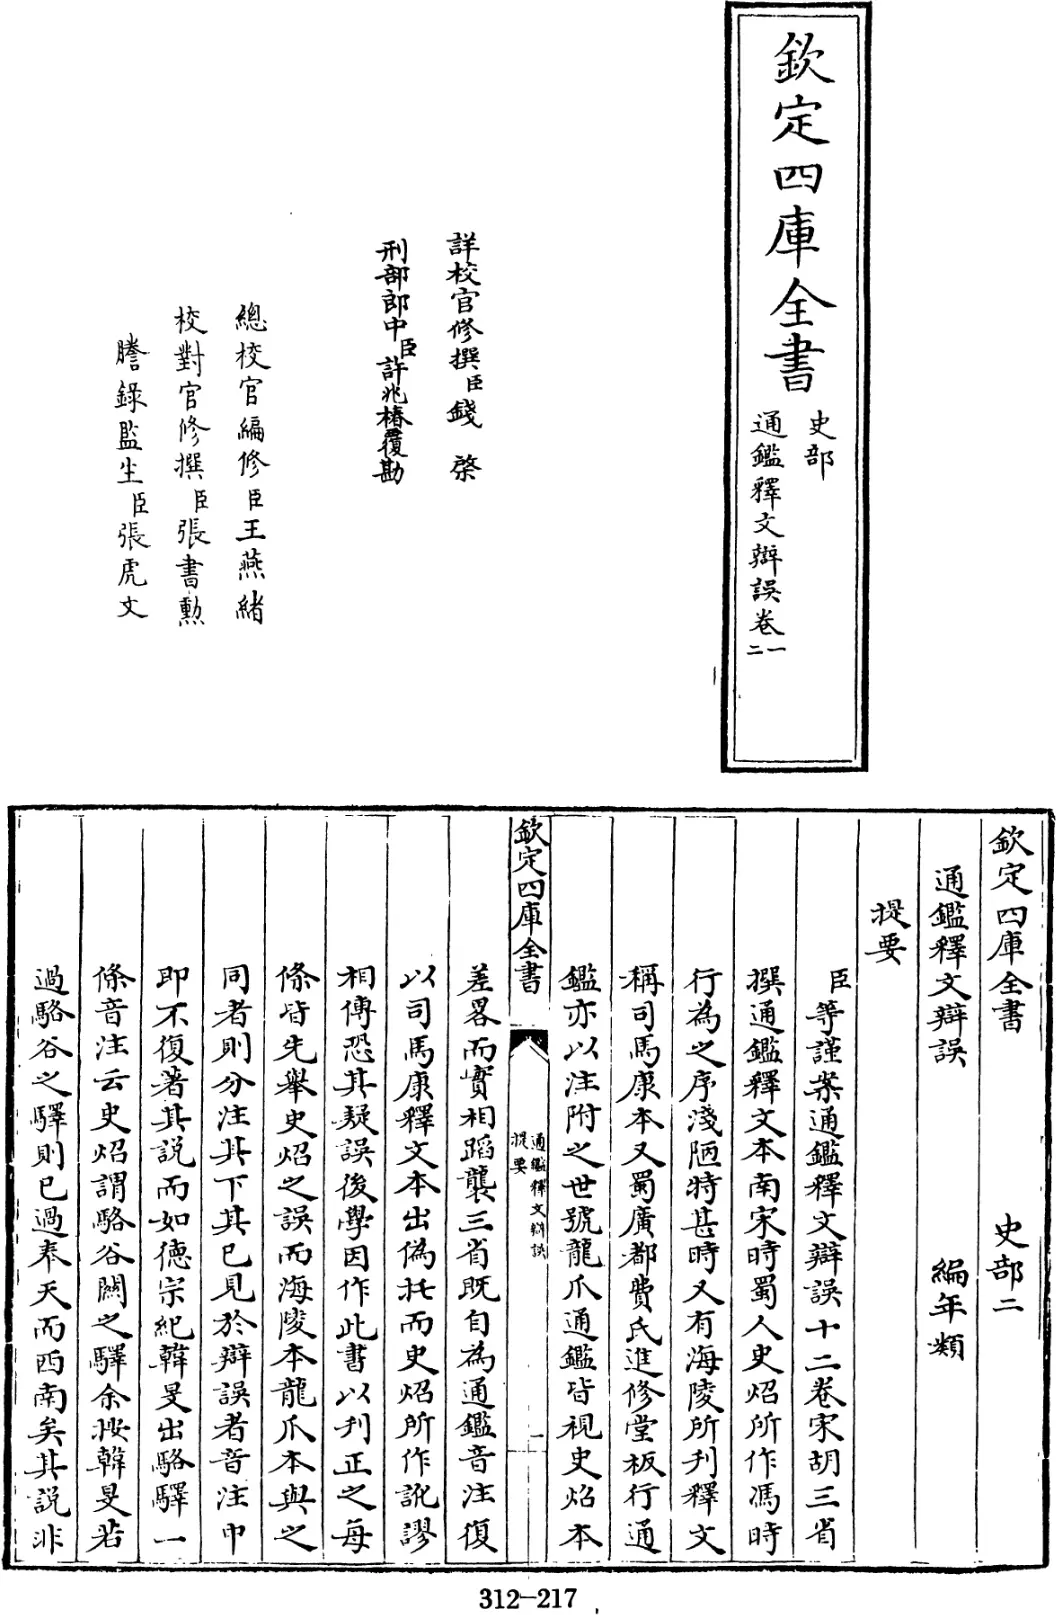 欽定四庫全書
史部
通鑑釋文辯誤卷一
二
詳校官修撰臣錢棨
刑部郎中臣許兆椿覆勘
總校官編修臣王燕緒
校對官修撰臣張書勳
謄錄監生臣張虎文
欽定四庫全書 史部二
通鑑釋文辯誤 編年類
提要
臣等謹案通鑑釋文辯誤十二卷宋胡三省
撰通鑑釋文本南宋時蜀人史炤所作馮時
行為之序淺陋特甚時又有海陵所刋釋文
稱司馬康本又蜀廣都費氏進修堂板行通
鑑亦以注附之世號龍爪通鑑皆視史炤本
欽定四庫全書
通鑑釋文辯誤
提要
一
差畧而實相蹈襲三省既自為通鑑音注復
以司馬康釋文本出偽托而史炤所作訛謬
相傳恐其疑誤後學因作此書以刋正之每
條皆先舉史炤之誤而海陵本龍爪本與之
同者則分注其下其已見於辯誤者音注中
即不復著其說而如德宗紀韓旻出駱驛一
條音注云史炤謂駱谷關之驛余按韓旻若
過駱谷之驛則已過奉天而西南矣其說非
312-217